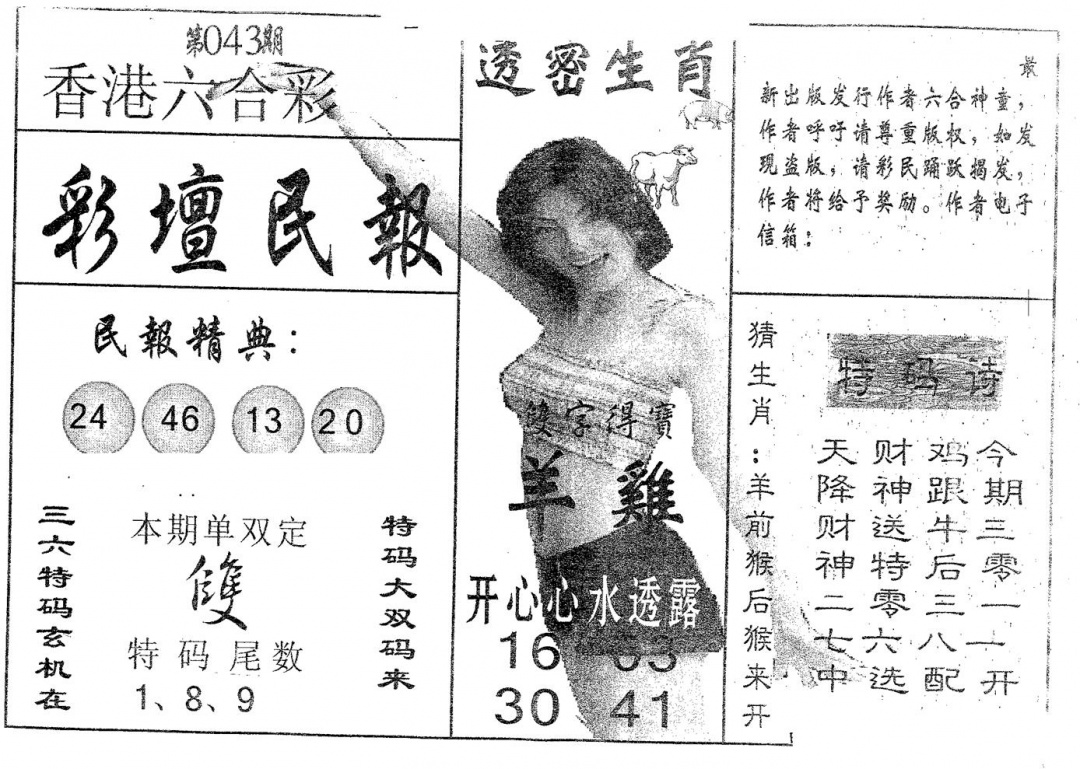 第043期
香港六合彩
彩壇民報
民報精典：
24 46 13 20
三六特码玄机在
本期单双定
雙
特码尾数
1、8、9
特码大双码来
透密生肖
雙字得寶
羊雞
开心心水透露
16 03
30 41
最
新出版发行作者六合神童，
作者呼吁请尊重版权，如发
现盗版，请彩民踊跃揭发，
作者将给予奖励。作者电子
信箱：
猜生肖：羊前猴后猴来开
特码诗
今期三零一一开
鸡跟牛后三八配
财神送特零六选
天降财神二七中